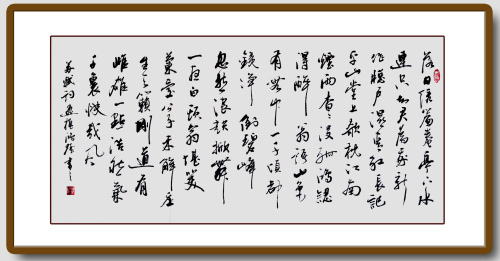 落日繡簾卷亭下水
連空知君為我新
作窗戶濕青紅長記
平山堂上欹枕江南
煙雨杳杳沒孤鴻認
得醉翁語山色
有無中一千頃都
鏡淨倒碧峰
忽然浪起掀舞
一葉白頭翁堪笑
蘭臺公子未解莊
生天籟剛道有
雌雄一點浩然氣
千裏快哉風
蘇軾詞